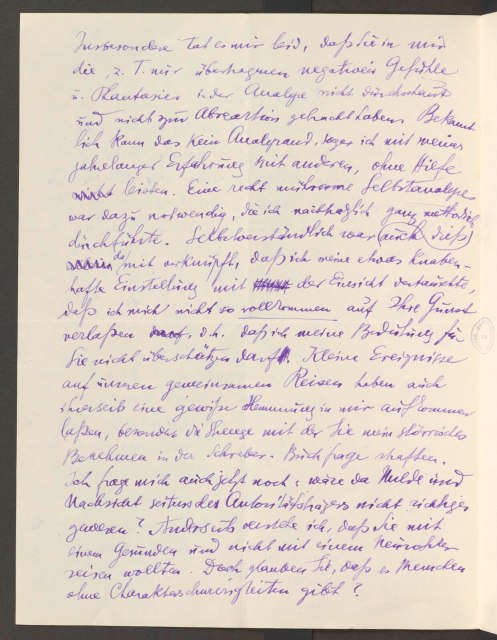 Insbesondere tat es mir leid, daß Sie in mir
die, z. T. nur übertragenen negativen Gefühle
u. Phantasien in der Analyse nicht durchschaut
und nicht zur Abreaction gebracht haben. Bekannt-
lich kann das kein Analysand, sogar ich mit meiner
jahrelanger Erfahrung mit anderen, ohne Hilfe
leisten. Eine recht mühsame Selbstanalyse
war dazu notwendig, die ich nachträglich ganz methodisch
durchführte. Selbstverständlich war (auch dies)
damit verknüpft, daß ich meine etwas knaben-
hafte Einstellung mit der Einsicht vertauschte
daß ich mich nicht so vollkommen auf Ihre Gunst
verlaßen darf, d.h. daß ich meine Bedeutung für
Sie nicht überschätzen darf. Kleine Ereignisse
auf unseren gemeinsamen Reisen haben auch
ihrerseits eine gewiße Hemmung in mir aufkommen
laßen, besonders die Strenge mit der Sie mein störrisches
Benehmen in der Schreber-Buchfrage straften.
Ich frage mich auch jetzt noch: wäre da Milde und
Nachsicht seitens des Autoritätsträgers nicht richtiger
gewesen? Anderseits verstehe ich, daß Sie mit
einem Gesunden und nicht mit einem Neurotiker
reisen wollten. Doch glauben Sie, daß es Menschen
ohne Charakterschwierigkeiten gibt?